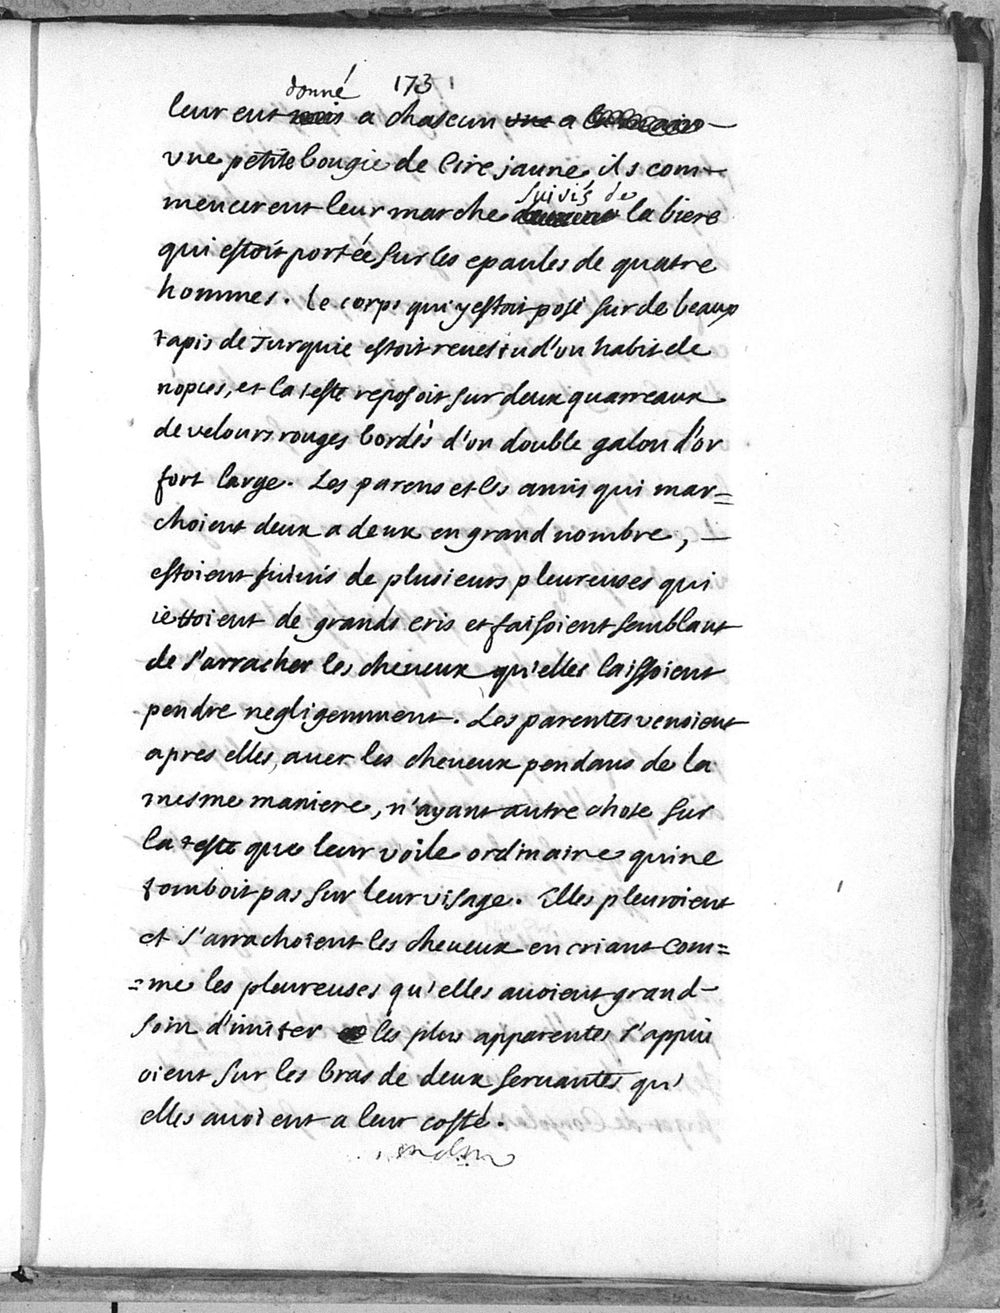 173
donné
leur eut mis a chascun une a
vne petite bougie de cire jaune, ils com-
suivis de
mencerent leur marche la biere
qui estoit portée sur les epaules de quatre
hommes. Le corps qui y estoit posé sur de beaux
tapis de Turquie estoit revestu d'un habit de
nopces, et la teste reposoit sur deux quarreaux
de velours rouges bordés d'un double galon d'or
fort large. Les parens et les amis qui mar=
choient deux a deux en grand nombre, —
estoient suiuis de plusieurs pleureuses qui
iettoient de grands cris et faisoient semblant
de s'arracher les cheueux qu'elles laissoient
pendre negligemment. Les parentes venoient
apres elles, auec les cheueux pendans de la
mesme maniere, n'ayant autre chose sur
la teste que leur voile ordinaire qui ne
tomboit pas sur leur visage. Elles pleuroient
et s'arrachoient les cheueux en criant com=
=me les pleureuses qu'elles auoient grand
soin d'imiter les plus apparentes s'appui
oient sur les bras de deux seruantes qu'
elles auoient a leur costé.